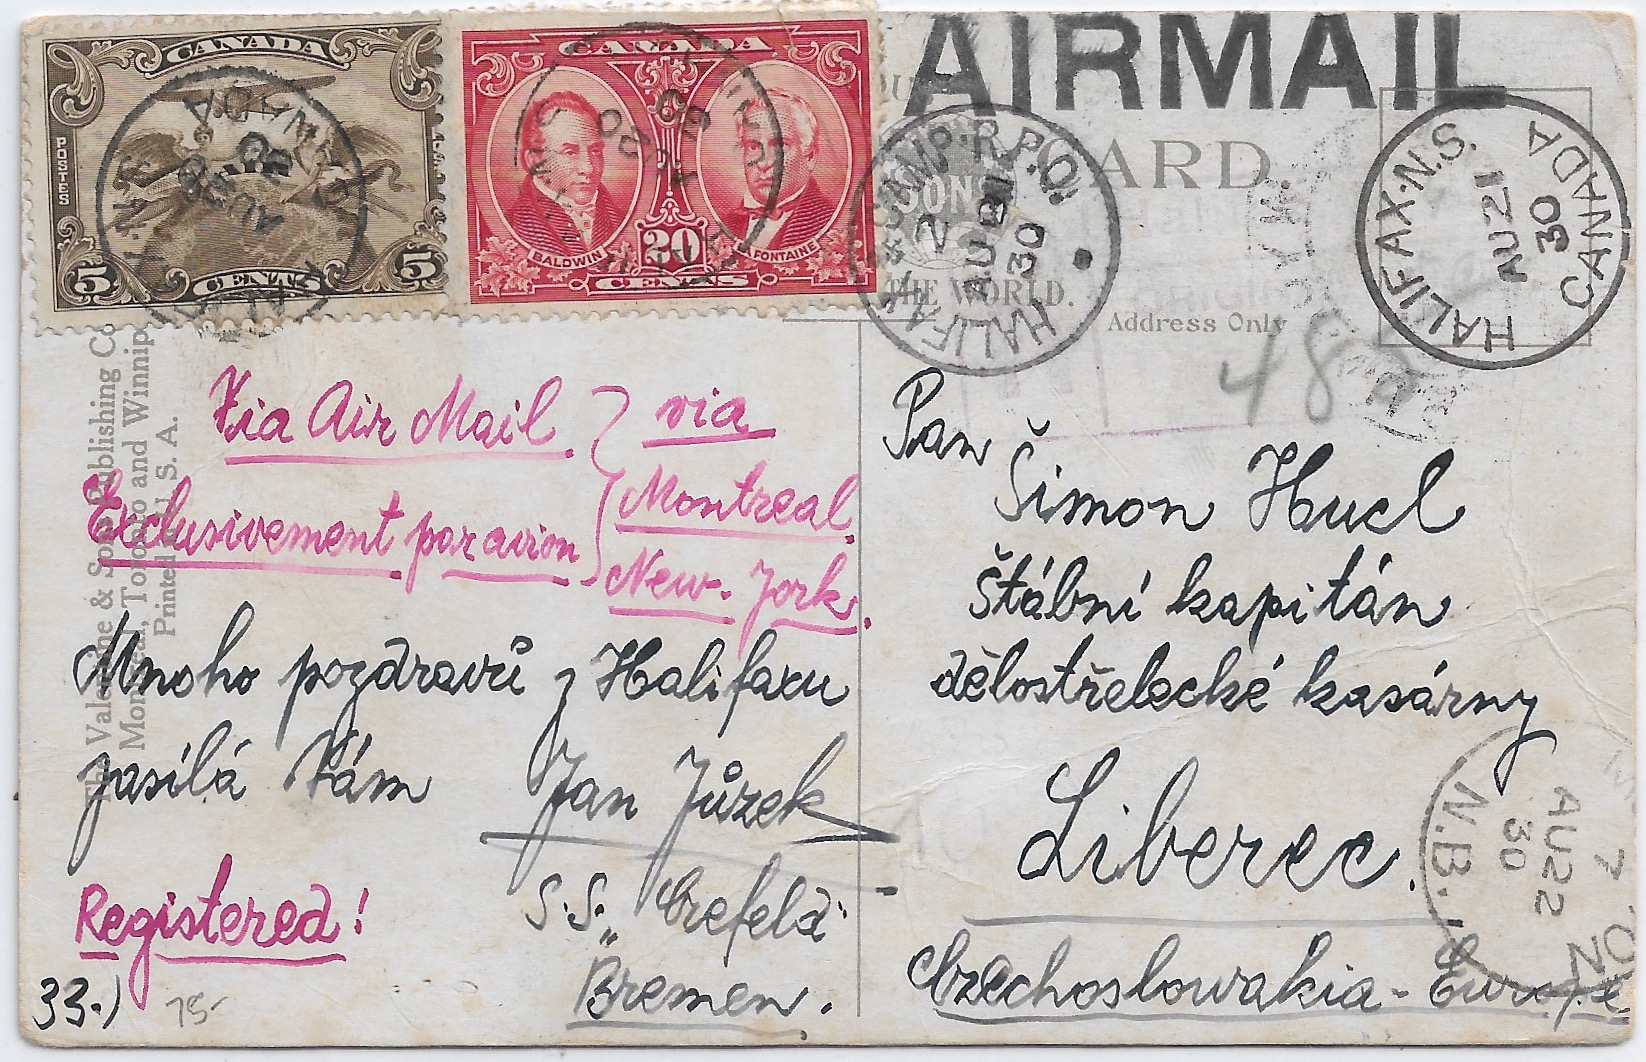 CANADA
POSTES
5 CENTS 5
CANADA
BALDWIN 20 LAFONTAINE
CENTS
AIRMAIL
CARD
THE WORLD.
Address Only
& CAMP. R.P.O.
21
AU 21
30
HALIFAX
HALIFAX. N.S.
AU 21
30
CANADA
48
The Valentine & Sons Publishing Co
Montreal, Toronto and Winnip
Printed in U. S. A.
Via Air Mail
Exclusivement par avion
via
Montreal
New-York.
Mnoho pozdravů z Halifaxu
zasílá Vám
Jan Jůzek
S.S. „Crefeld"
Bremen.
Registered!
33.)
75-
Pan
Šimon Hucl
Štábní kapitán
dělostřelecké kasárny
Liberec.
Czechoslowakia - Europe
7
AU 22
30
N.B.